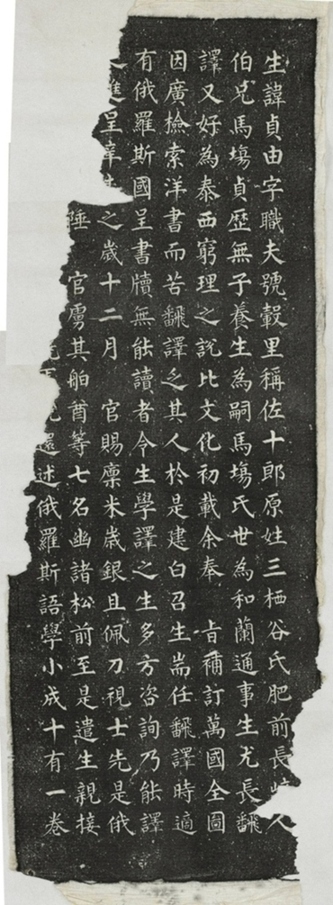 生諱貞由字職夫號轂里稱佐十郎原姓三栖谷氏肥前長崎人
伯兄馬塲貞歴無子養生為嗣馬塲氏世為和蘭通事生尤長飜
譯又好為泰西窮理之說比文化初載余奉 旨補訂萬國全圖
因廣撿索洋書而苦飜譯乏其人於是建白召生耑任飜譯時適
有俄羅斯國呈書牘無能讀者令生學譯之生多方咨詢乃能譯
進呈 之歲十二月 官賜廩米歲銀且佩刀視士先是俄
陲 官虜其舶酋等七名幽諸松前至是遣生親接
還述俄羅斯語學小成十有一卷